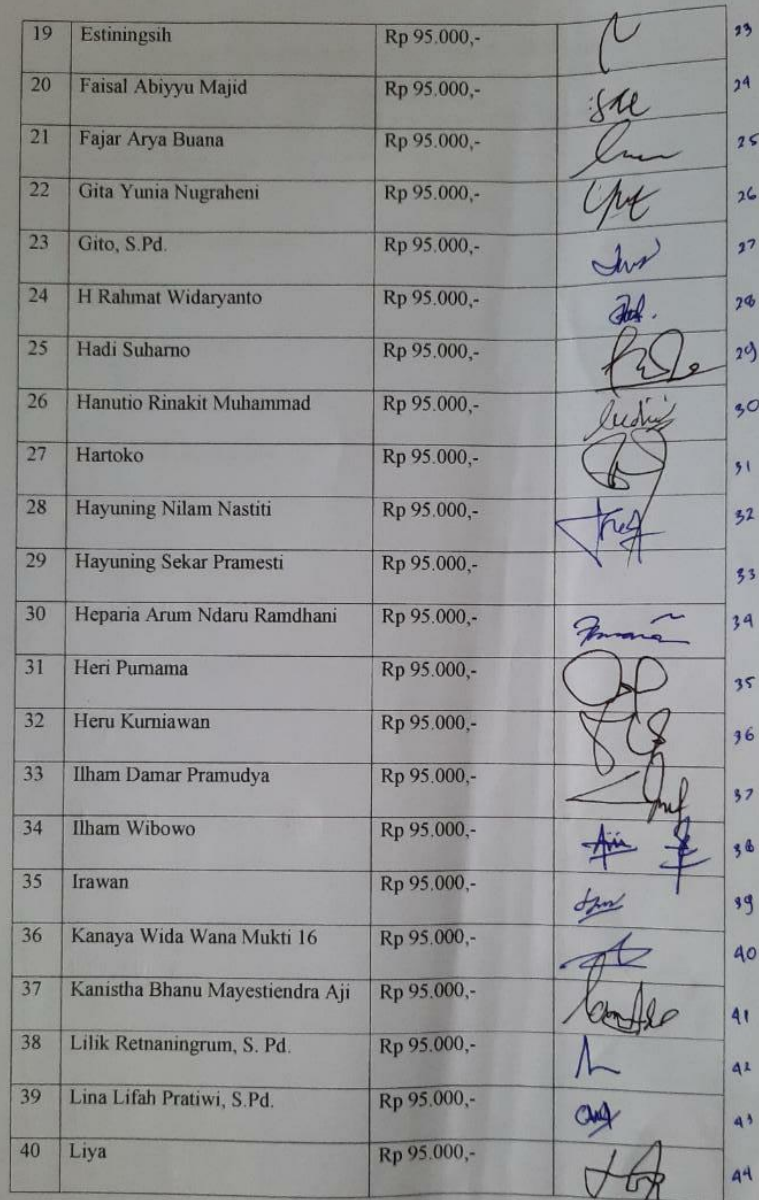 19 Estiningsih Rp 95.000,- 23
20 Faisal Abiyyu Majid Rp 95.000,- 24
21 Fajar Arya Buana Rp 95.000,- 25
22 Gita Yunia Nugraheni Rp 95.000,- 26
23 Gito, S.Pd. Rp 95.000,- 27
24 H Rahmat Widaryanto Rp 95.000,- 28
25 Hadi Suharno Rp 95.000,- 29
26 Hanutio Rinakit Muhammad Rp 95.000,- 30
27 Hartoko Rp 95.000,- 31
28 Hayuning Nilam Nastiti Rp 95.000,- 32
29 Hayuning Sekar Pramesti Rp 95.000,- 33
30 Heparia Arum Ndaru Ramdhani Rp 95.000,- 34
31 Heri Purnama Rp 95.000,- 35
32 Heru Kurniawan Rp 95.000,- 36
33 Ilham Damar Pramudya Rp 95.000,- 37
34 Ilham Wibowo Rp 95.000,- 38
35 Irawan Rp 95.000,- 39
36 Kanaya Wida Wana Mukti 16 Rp 95.000,- 40
37 Kanistha Bhanu Mayestiendra Aji Rp 95.000,- 41
38 Lilik Retnaningrum, S. Pd. Rp 95.000,- 42
39 Lina Lifah Pratiwi, S.Pd. Rp 95.000,- 43
40 Liya Rp 95.000,- 44